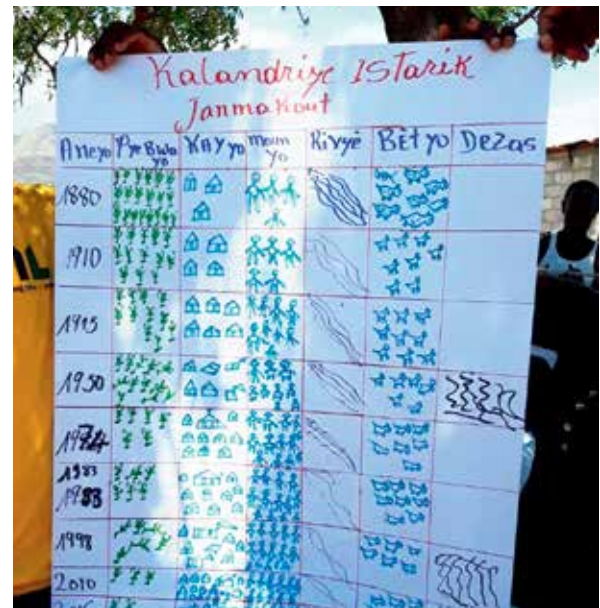 Kalandriye IStarik
Janmakout
Aneyo Pye Bwa yo Kay yo Moun yo Rivyè Bèt yo Dezas
1880
1910
1915
1950
1974
1983
1983
1998
2010